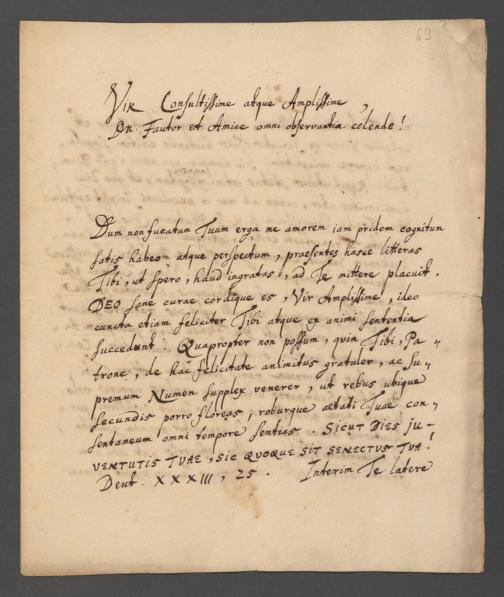 69
Vir Consultissime atque Amplissime,
Dn. Fautor et Amice omni observantia colende!
Dum non fucatum Tuum erga me amorem iam pridem cognitum
satis habeo atque perspectum, praesentes hasce litteras
Tibi, ut spero, haud ingratas, ad Te mittere placuit.
DEO sane curae cordique es, Vir Amplissime, ideo
cuncta etiam feliciter Tibi atque ex animi sententia
succedunt. Quapropter non possum, quin Tibi, Pa-
trone, de hac felicitate animitus gratuler, ac Su-
premum Numen supplex venerer, ut rebus ubique
secundis porro floreas, roburque aetati Tuae con-
sentaneum omni tempore sentias. SICUT DIES JU-
VENTUTIS TUAE, SIC QUOQUE SIT SENECTUS TUA!
Deut. XXXIII, 25. Interim Te latere